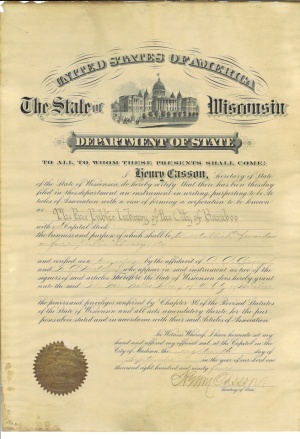 UNITED STATES OF AMERICA
The State of Wisconsin
DEPARTMENT OF STATE
TO ALL TO WHOM THESE PRESENTS SHALL COME:
I Henry Casson, Secretary of State
of the State of Wisconsin, do hereby certify that there has been this day
filed in this department an instrument in writing purporting to be Ar-
ticles of Association with a view of forming a corporation to be known
as The Free Public Library of the City of Baraboo
with Capital Stock
the business and purpose of which shall be
and verified as by the affidavit of
and who appear in said instrument as two of the
signers of said articles Therefore the State of Wisconsin does hereby grant
unto the said
the powers and privileges conferred by Chapter 86 of the Revised Statutes
of the State of Wisconsin and all acts amendatory thereto for the pur-
poses above stated and in accordance with their said Articles of Association.
In Witness Whereof, I have hereunto set my
hand and affixed my official seal, at the Capitol in the
City of Madison, this day of
in the year of our Lord one
thousand eight hundred and ninety
Henry Casson
Secretary of State.